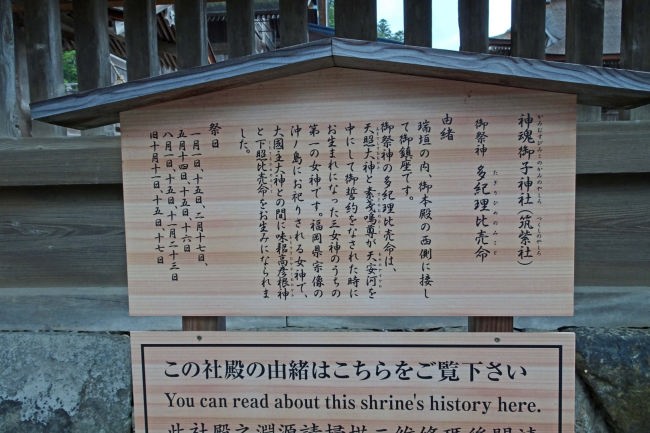 神魂御子神社（筑紫社）
御祭神 多紀理比売命
たぎりひめのみこと
由緒
瑞垣の内、御本殿の西側に接し
て御鎮座です。
御祭神の多紀理比売命は、
天照大神と素戔嗚尊が天安河を
中にして御誓約をなされた時に
お生まれになった三女神のうちの
第一の女神です。福岡県宗像の
沖ノ島にお祀りされる女神で、
大國主大神との間に味耜高彦根神
と下照比売命をお生みになられま
した。
祭日
一月一日、十五日、二月十七日、
五月十四日、十五日、十六日
八月一日、十五日、十一月二十三日
旧十月十一日、十五日、十七日
この社殿の由緒はこちらをご覧下さい
You can read about this shrine's history here.
此社殿之淵源請掃描二維條碼後閱讀